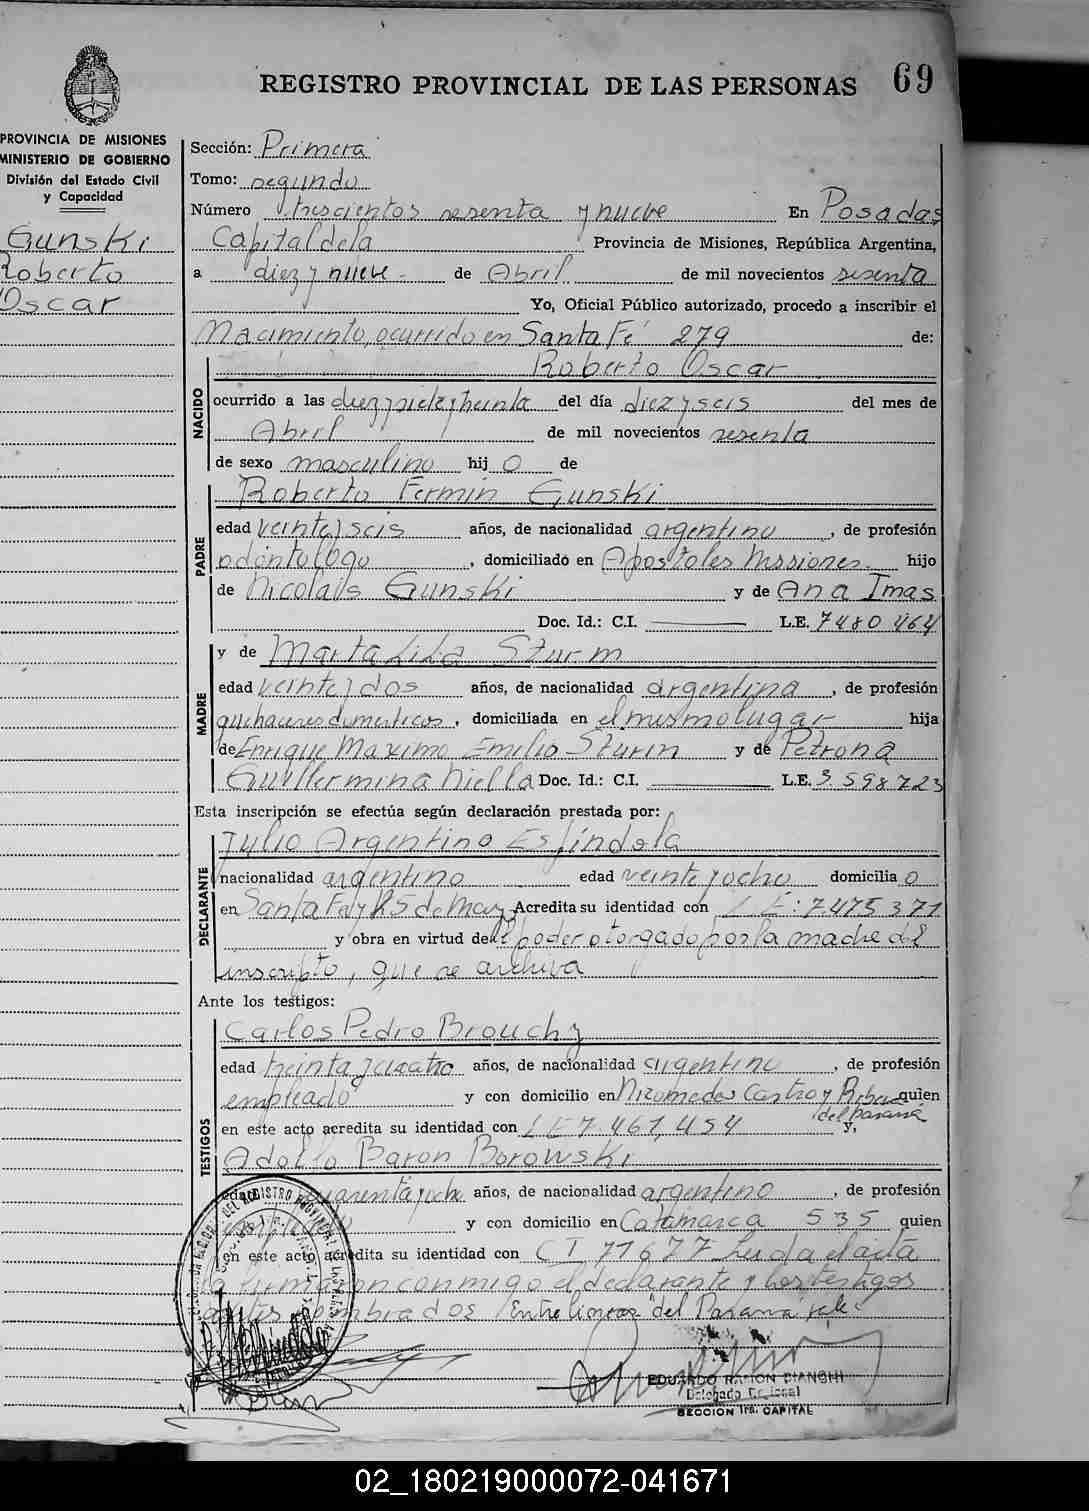 REGISTRO PROVINCIAL DE LAS PERSONAS 69
PROVINCIA DE MISIONES
MINISTERIO DE GOBIERNO
División del Estado Civil
y Capacidad
Gunski
Roberto
Oscar
Sección: Primera
Tomo: segundo
Número trescientos sesenta y nueve En Posadas
Capital de la Provincia de Misiones, República Argentina,
a diez y nueve de Abril de mil novecientos sesenta
Yo, Oficial Público autorizado, procedo a inscribir el
Nacimiento, ocurrido en Santa Fé 279 de:
Roberto Oscar
NACIDO
ocurrido a las diez y siete y treinta del día diez y seis del mes de
Abril de mil novecientos sesenta
de sexo masculino hij o de
PADRE
Roberto Fermin Gunski
edad veinte y seis años, de nacionalidad argentino, de profesión
odontologo, domiciliado en Apostoles Misiones hijo
de Nicolais Gunski y de Ana Imas
Doc. Id.: C.I. L.E. 7480464
MADRE
y de Marta Lida Sturm
edad veinte y dos años, de nacionalidad argentina, de profesión
quehaceres domesticos, domiciliada en el mismo lugar hija
de Enrique Maximo Emilio Sturm y de Petrona
Guillermina Niella Doc. Id.: C.I. L.E. 3.598723
Esta inscripción se efectúa según declaración prestada por:
DECLARANTE
Julio Argentino Espíndola
nacionalidad argentino edad veinte y ocho domicilia o
en Santa Fe y 25 de Mayo Acredita su identidad con L E: 7.475.371
y obra en virtud del poder otorgado por la madre del
inscripto, que se archiva
Ante los testigos:
TESTIGOS
Carlos Pedro Brouchy
edad treinta y cuatro años, de nacionalidad argentino, de profesión
empleado y con domicilio en Nicomedes Castro y Riberas quien
del Paraná
en este acto acredita su identidad con L E 7.461,454 y,
Adolfo Baron Borowski
edad cuarenta y ocho años, de nacionalidad argentino, de profesión
y con domicilio en Catamarca 535 quien
en este acto acredita su identidad con C I 71677 Leida el acta
la firmaron conmigo el declarante y los testigos
antes nombrados Entre lineas "del Parana" vale.
EDUARDO RAMON BIANCHI
Delegado Regional
SECCION 1ra. CAPITAL
02_180219000072-041671